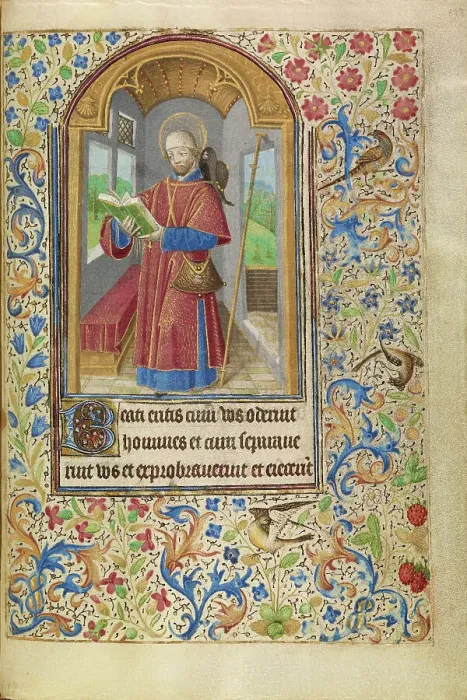 Beati eritis cum vos oderint
homines et cum separaue
rint vos et exprobrauerint et eiecerint